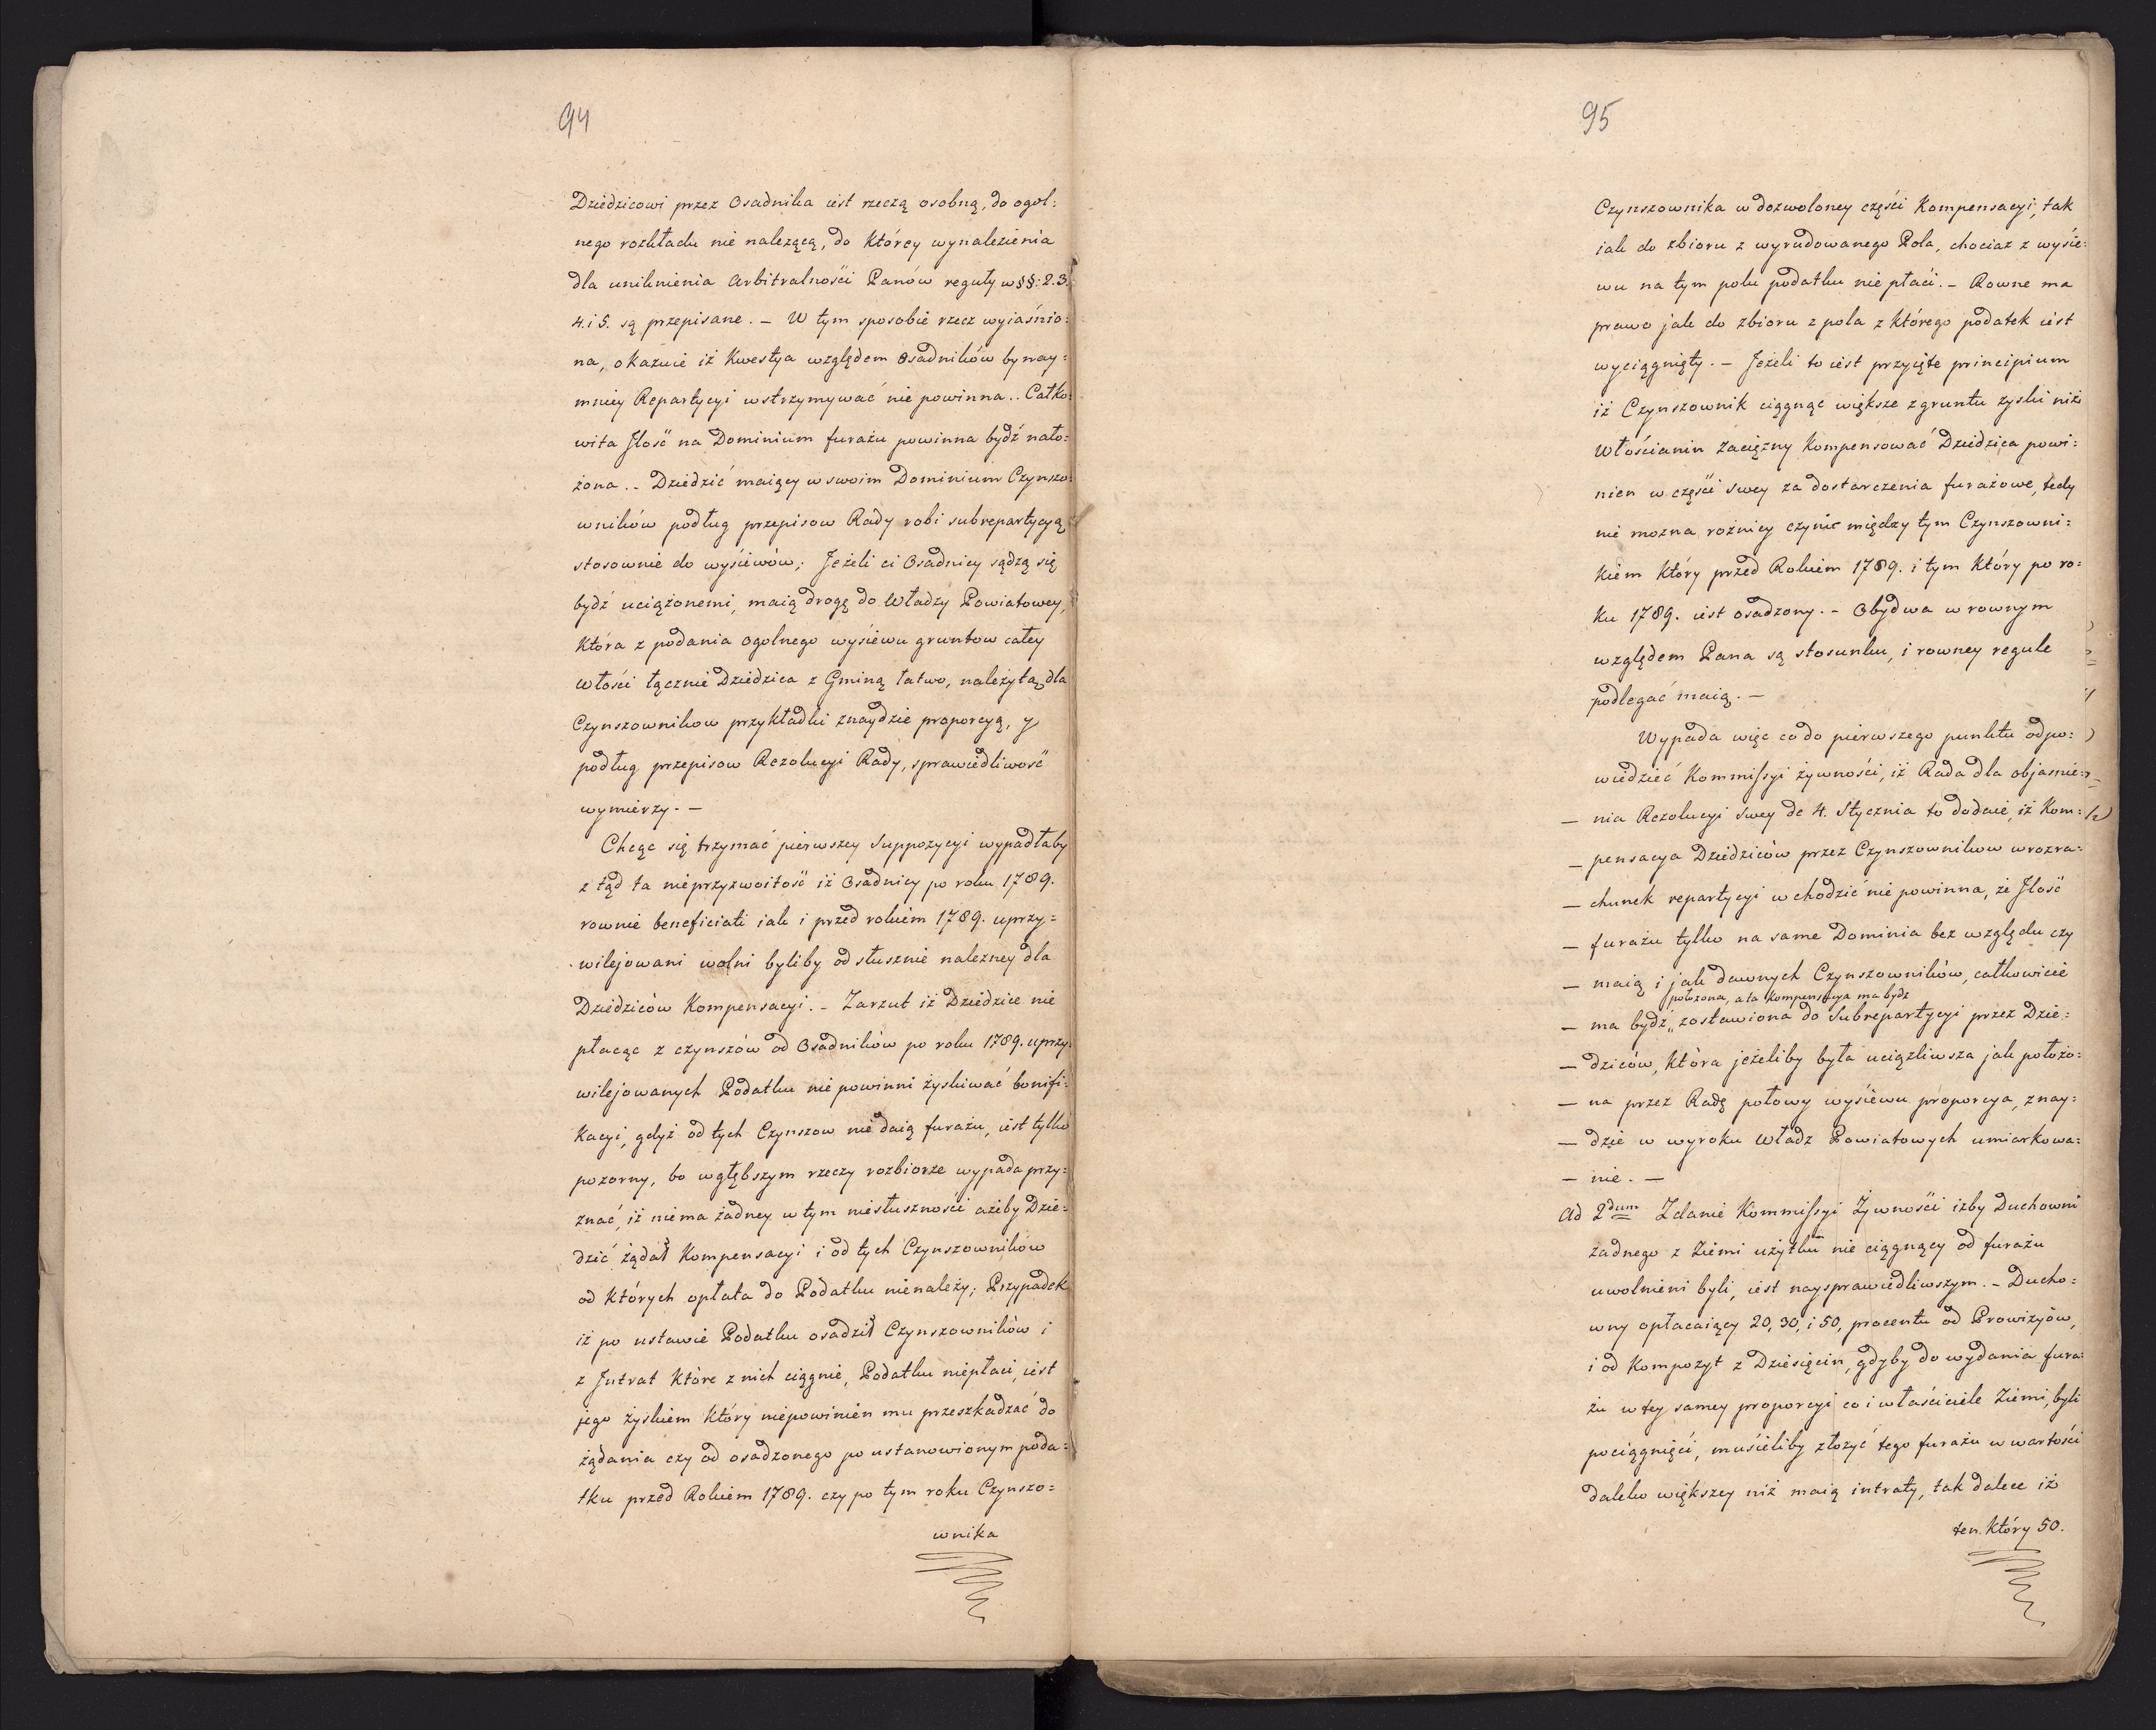 94
Dziedzicowi przez Osadnika iest rzeczą osobną, do ogol:
nego rozkładu nie nalezącą, do którey wynalezienia
dla uniknienia Arbitralności Panów reguły w §§: 2. 3.
4. i 5. są przepisane. – W tym sposobie rzecz wyiaśnio:
na, okazuie iż Kwestya względem Osadników bynay:
mniey Repartycyi wstrzymywać nie powinna.. Całko:
wita Jlość na Dominium furażu powinna bydź nało:
żona.. Dziedzić maiący w swoim Dominium Czynszo:
wników podług przepisow Rady robi subrepartycyą
stosownie do wysiewów; Jeżeli ci Osadnicy sądzą się
bydź uciążonemi, maią drogę do Władzy Powiatowey,
która z podania ogolnego wysiewu gruntow całey
Włości łącznie Dziedzica z Gminą łatwo, należytą dla
Czynszownikow przykładki znaydzie proporcyą, y
podług przepisow Rezolucyi Rady, sprawiedliwość
wymierzy. –
Chcąc się trzymać pierwszey Suppozycyi wypadłaby
z tąd ta nieprzyzwoitość iż Osadnicy po roku 1789.
rownie beneficiati iak i przed rokiem 1789. uprzy=
wilejowani wolni byliby od słusznie nalezney dla
Dziedziców Kompensacyi. – Zarzut iż Dziedzice nie
płacąc z czynszów od Osadników po roku 1789. uprzy:
wilejowanych Podatku nie powinni zyskiwać bonifi:
kacyi, gdyż od tych Czynszow nie daią furażu, iest tylko
pozorny, bo w głębszym rzeczy rozbiorze wypada przy:
znać, iż niema żadney w tym niesłuszności ażeby Dzie:
dzić żądał Kompensacyi i od tych Czynszowników
od których opłata do Podatku nienależy; Przypadek
iż po ustawie Podatku osadził Czynszowników i
z Jntrat które z nich ciągnie, Podatku niepłaci, iest
jego zyskiem który niepowinien mu przeszkadzać do
żądania czy od osadzonego po ustanowionym poda=
tku przed Rokiem 1789. czy po tym roku Czynszo=
wnika
95
Czynszownika w dozwoloney części Kompensacyi, tak
iak do zbioru z wyrudowanego Pola, chociaz z wysie:
wu na tym polu podatku nie płaci. – Rowne ma
prawo jak do zbioru z pola z którego podatek iest
wyciągnięty. – Jeżeli to iest przyięte principium
iż Czynszownik ciągnąc większe z gruntu zyski niż
Włościanin zaciężny Kompensować Dziedzica powi:
nien w części swey za dostarczenia furażowe, tedy
nie mozna rożnicy czynic między tym Czynszowni:
kiem który przed Rokiem 1789. i tym który po ro:
ku 1789. iest osadzony. – Obydwa w rownym
względem Pana są stosunku, i rowney regule
podlegać maią. –
Wypada więc co do pierwszego punktu odpo:
wiedzieć Kommissyi żywności, iż Rada dla objasnie:
– nia Rezolucyi swey de 4. Stycznia to dodaie, iż Kom:
– pensacya Dziedziców przez Czynszownikow w rozra:
– chunek repartycyi wchodzić nie powinna, że Jlość
– furażu tylko na same Dominia bez względu czy
– maią i jak dawnych Czynszowników, całkowicie
położona, a ta kompensacya ma bydz
– ma bydź „ zostawiona do Subrepartycyi przez Dzie:
– dziców, która jeżeliby była uciązliwsza jak położo:
– na przez Radę połowy wysiewu proporcya, znay:
– dzie w wyroku Władz Powiatowych umiarkowa:
– nie. –
Ad 2dum Zdanie Kommissyi Żywności izby Duchowni
zadnego z Ziemi użytku nie ciągnący od furażu
uwolnieni byli, iest naysprawiedliwszym. – Ducho:
wny opłacaiący 20, 30, i 50, procentu od Prowizyów,
i od Kompozyt z Dziesięcin, gdyby do wydania fura:
żu w tey samey proporcyi co i właściciele Ziemi, byli
pociągnięći, musieliby złożyć tego furażu w wartości
daleko większey niż maią intraty, tak dalece iż
ten który 50.